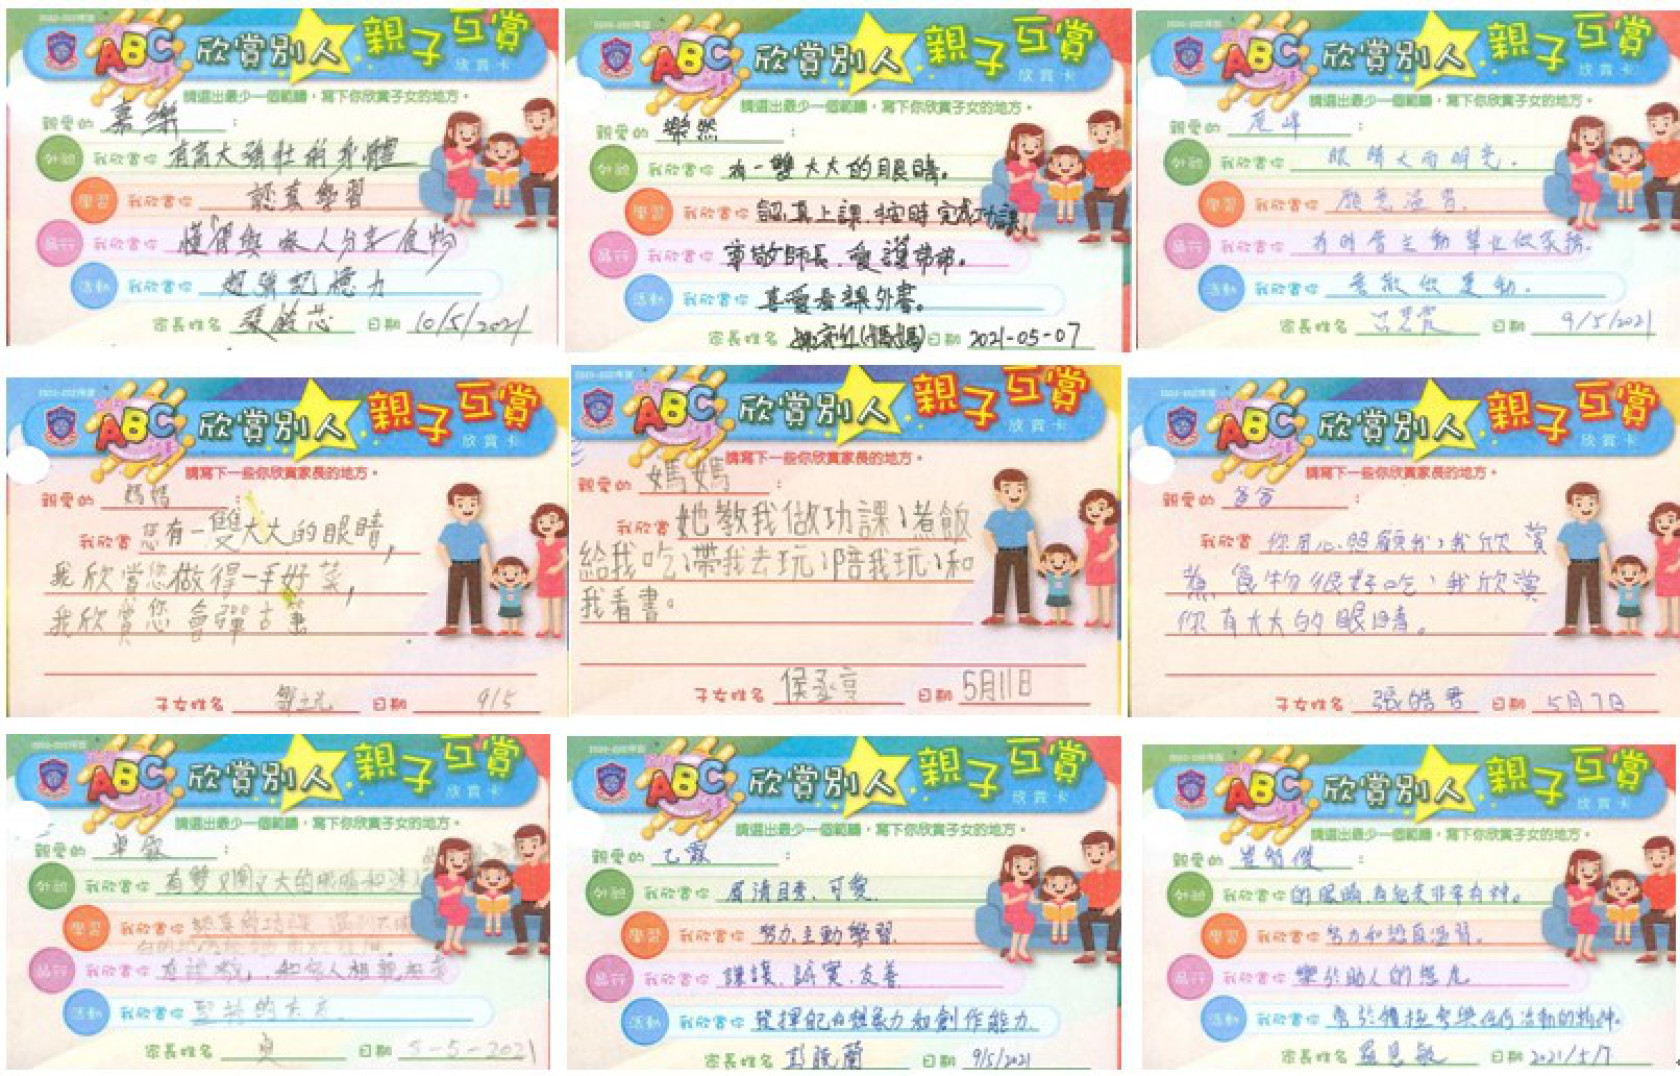 2020-2021年度
ABC 欣賞別人 親子互賞
欣賞卡
請選出最少一個範疇，寫下你欣賞子女的地方。
親愛的 嘉樂 :
外觀 我欣賞你 有高大強壯的身體
學習 我欣賞你 認真學習
品行 我欣賞你 懂得與家人分享食物
活動 我欣賞你 超強記憶力
家長姓名 張敏芯 日期 10/5/2021
2020-2021年度
ABC 欣賞別人 親子互賞
欣賞卡
請選出最少一個範疇，寫下你欣賞子女的地方。
親愛的 樂然 :
外觀 我欣賞你 有一雙大大的眼睛。
學習 我欣賞你 認真上課、按時完成功課。
品行 我欣賞你 尊敬師長、愛護弟弟。
活動 我欣賞你 喜愛看課外書。
家長姓名 (媽媽) 日期 2021-05-07
2020-2021年度
ABC 欣賞別人 親子互賞
欣賞卡
請選出最少一個範疇，寫下你欣賞子女的地方。
親愛的 峰 :
外觀 我欣賞你 眼睛大而明亮。
學習 我欣賞你 願意溫習。
品行 我欣賞你 有時會主動幫忙做家務。
活動 我欣賞你 喜歡做運動。
家長姓名 日期 9/5/2021
2020-2021年度
ABC 欣賞別人 親子互賞
欣賞卡
請寫下一些你欣賞家長的地方。
親愛的 媽媽 :
我欣賞 您有一雙大大的眼睛,
我欣賞您做得一手好菜,
我欣賞您會彈古箏
子女姓名 日期 9/5
2020-2021年度
ABC 欣賞別人 親子互賞
欣賞卡
請寫下一些你欣賞家長的地方。
親愛的 媽媽 :
我欣賞 她教我做功課、煮飯
給我吃、帶我去玩、陪我玩、和
我看書。
子女姓名 侯丞亨 日期 5月11日
2020-2021年度
ABC 欣賞別人 親子互賞
欣賞卡
請寫下一些你欣賞家長的地方。
親愛的 爸爸 :
我欣賞 你用心照顧我,我欣賞
煮食物很好吃,我欣賞
你有大大的眼睛。
子女姓名 張皓君 日期 5月7日
2020-2021年度
ABC 欣賞別人 親子互賞
欣賞卡
請選出最少一個範疇，寫下你欣賞子女的地方。
親愛的 卓霖 :
外觀 我欣賞你 有雙又圓又大的眼睛和
學習 我欣賞你 認真做功課
品行 我欣賞你 有禮貌,和家人相親相愛
活動 我欣賞你 堅持的
家長姓名 日期 5-5-2021
2020-2021年度
ABC 欣賞別人 親子互賞
欣賞卡
請選出最少一個範疇，寫下你欣賞子女的地方。
親愛的 乙霖 :
外觀 我欣賞你 眉清目秀、可愛.
學習 我欣賞你 努力、主動學習.
品行 我欣賞你 謙讓、誠實、友善
活動 我欣賞你 發揮自己的想象力和創作能力.
家長姓名 彭曉蘭 日期 9/5/2021
2020-2021年度
ABC 欣賞別人 親子互賞
欣賞卡
請選出最少一個範疇，寫下你欣賞子女的地方。
親愛的 :
外觀 我欣賞你 的眼睛,看起來非常有神。
學習 我欣賞你 努力和認真溫習。
品行 我欣賞你 樂於助人的態度
活動 我欣賞你 勇於積極參與任何活動的精神。
家長姓名 羅思敏 日期 2021/5/7